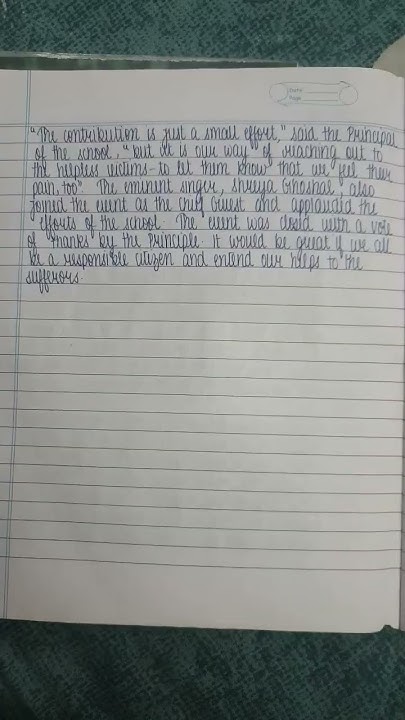 Date
Page
"The contribution is just a small effort," said the Principal
of the school, "but it is our way of reaching out to
the helpless victims - to let them know that we feel their
pain, too". The eminent singer, Shreya Ghoshal, also
joined the event as the chief Guest and applaudid the
efforts of the school. The event was closed with a vote
of thanks by the Principle. It would be great if we all
be a responsible citizen and extend our helps to the
sufferors.